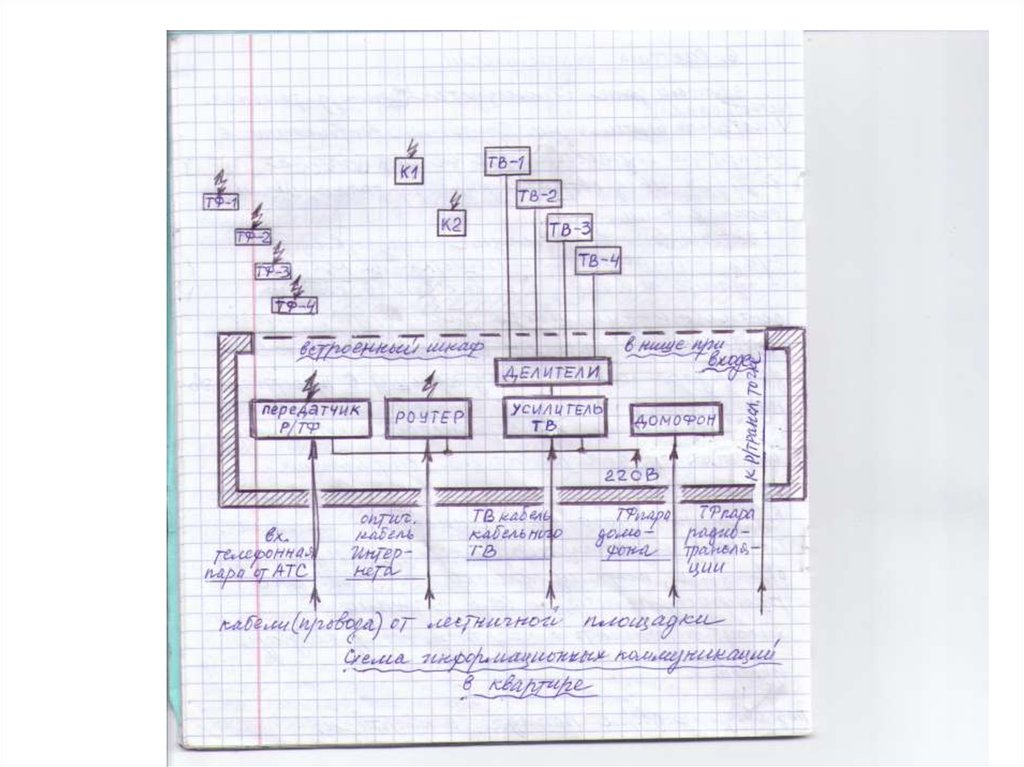 К1
ТВ-1
ТФ-1
ТВ-2
К2
ТВ-3
ТФ-2
ТВ-4
ТФ-3
ТФ-4
встроенный шкаф
в нише при
входе
ДЕЛИТЕЛИ
передатчик
Р/ТФ
РОУТЕР
УСИЛИТЕЛЬ
ТВ
ДОМОФОН
к р/трансл. точке
220В
вх.
телефонная
пара от АТС
оптич.
кабель
Интер-
нета
ТВ кабель
кабельного
ТВ
ТФ пара
домо-
фона
ТФ пара
радио-
трансля-
ции
кабели (провода) от лестничной площадки
Схема информационных коммуникаций
в квартире